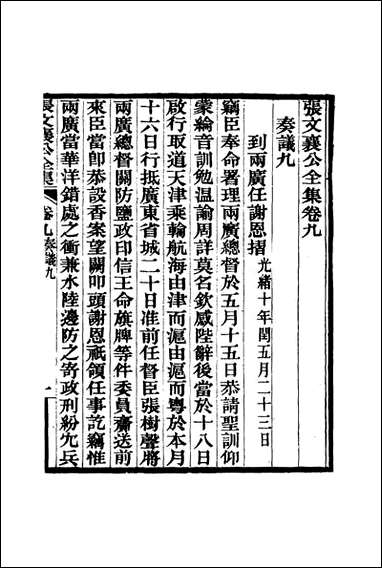 張文襄公全集卷九
奏議九
到兩廣任謝恩摺 光緒十年閏五月二十三日
竊臣奉命署理兩廣總督於五月十五日恭請聖訓仰
蒙綸音訓勉溫諭周詳莫名欽感陛辭後當於十八日
啟行取道天津乘輪航海由津而滬由滬而粵於本月
十六日行抵廣東省城二十日准前任督臣張樹聲將
兩廣總督關防鹽政印信王命旗牌等件委員齎送前
來臣當卽恭設香案望闕叩頭謝恩祇領任事訖竊惟
兩廣當華洋錯處之衝兼水陸邊防之寄政刑紛宂兵
張文襄公全集 卷九 奏議九 一